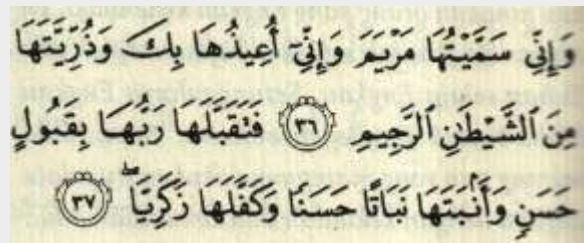 وَإِنِّي سَمَّيْتُهَا مَرْيَمَ وَإِنِّيٓ أُعِيذُهَا بِكَ وَذُرِّيَّتَهَا
مِنَ الشَّيْطَٰنِ الرَّجِيمِ ٣٦ فَتَقَبَّلَهَا رَبُّهَا بِقَبُولٍ
حَسَنٍ وَأَنۢبَتَهَا نَبَاتًا حَسَنًا وَكَفَّلَهَا زَكَرِيَّا ۖ ٣٧